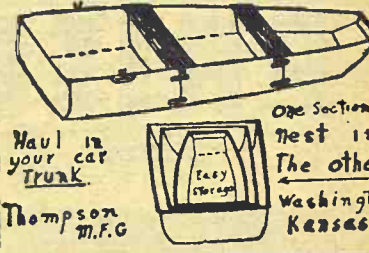 Haul in
your car
Trunk.
Thompson
M.F.G
Easy
Storage
One Section
nest in
The other
Washingt
Kansas